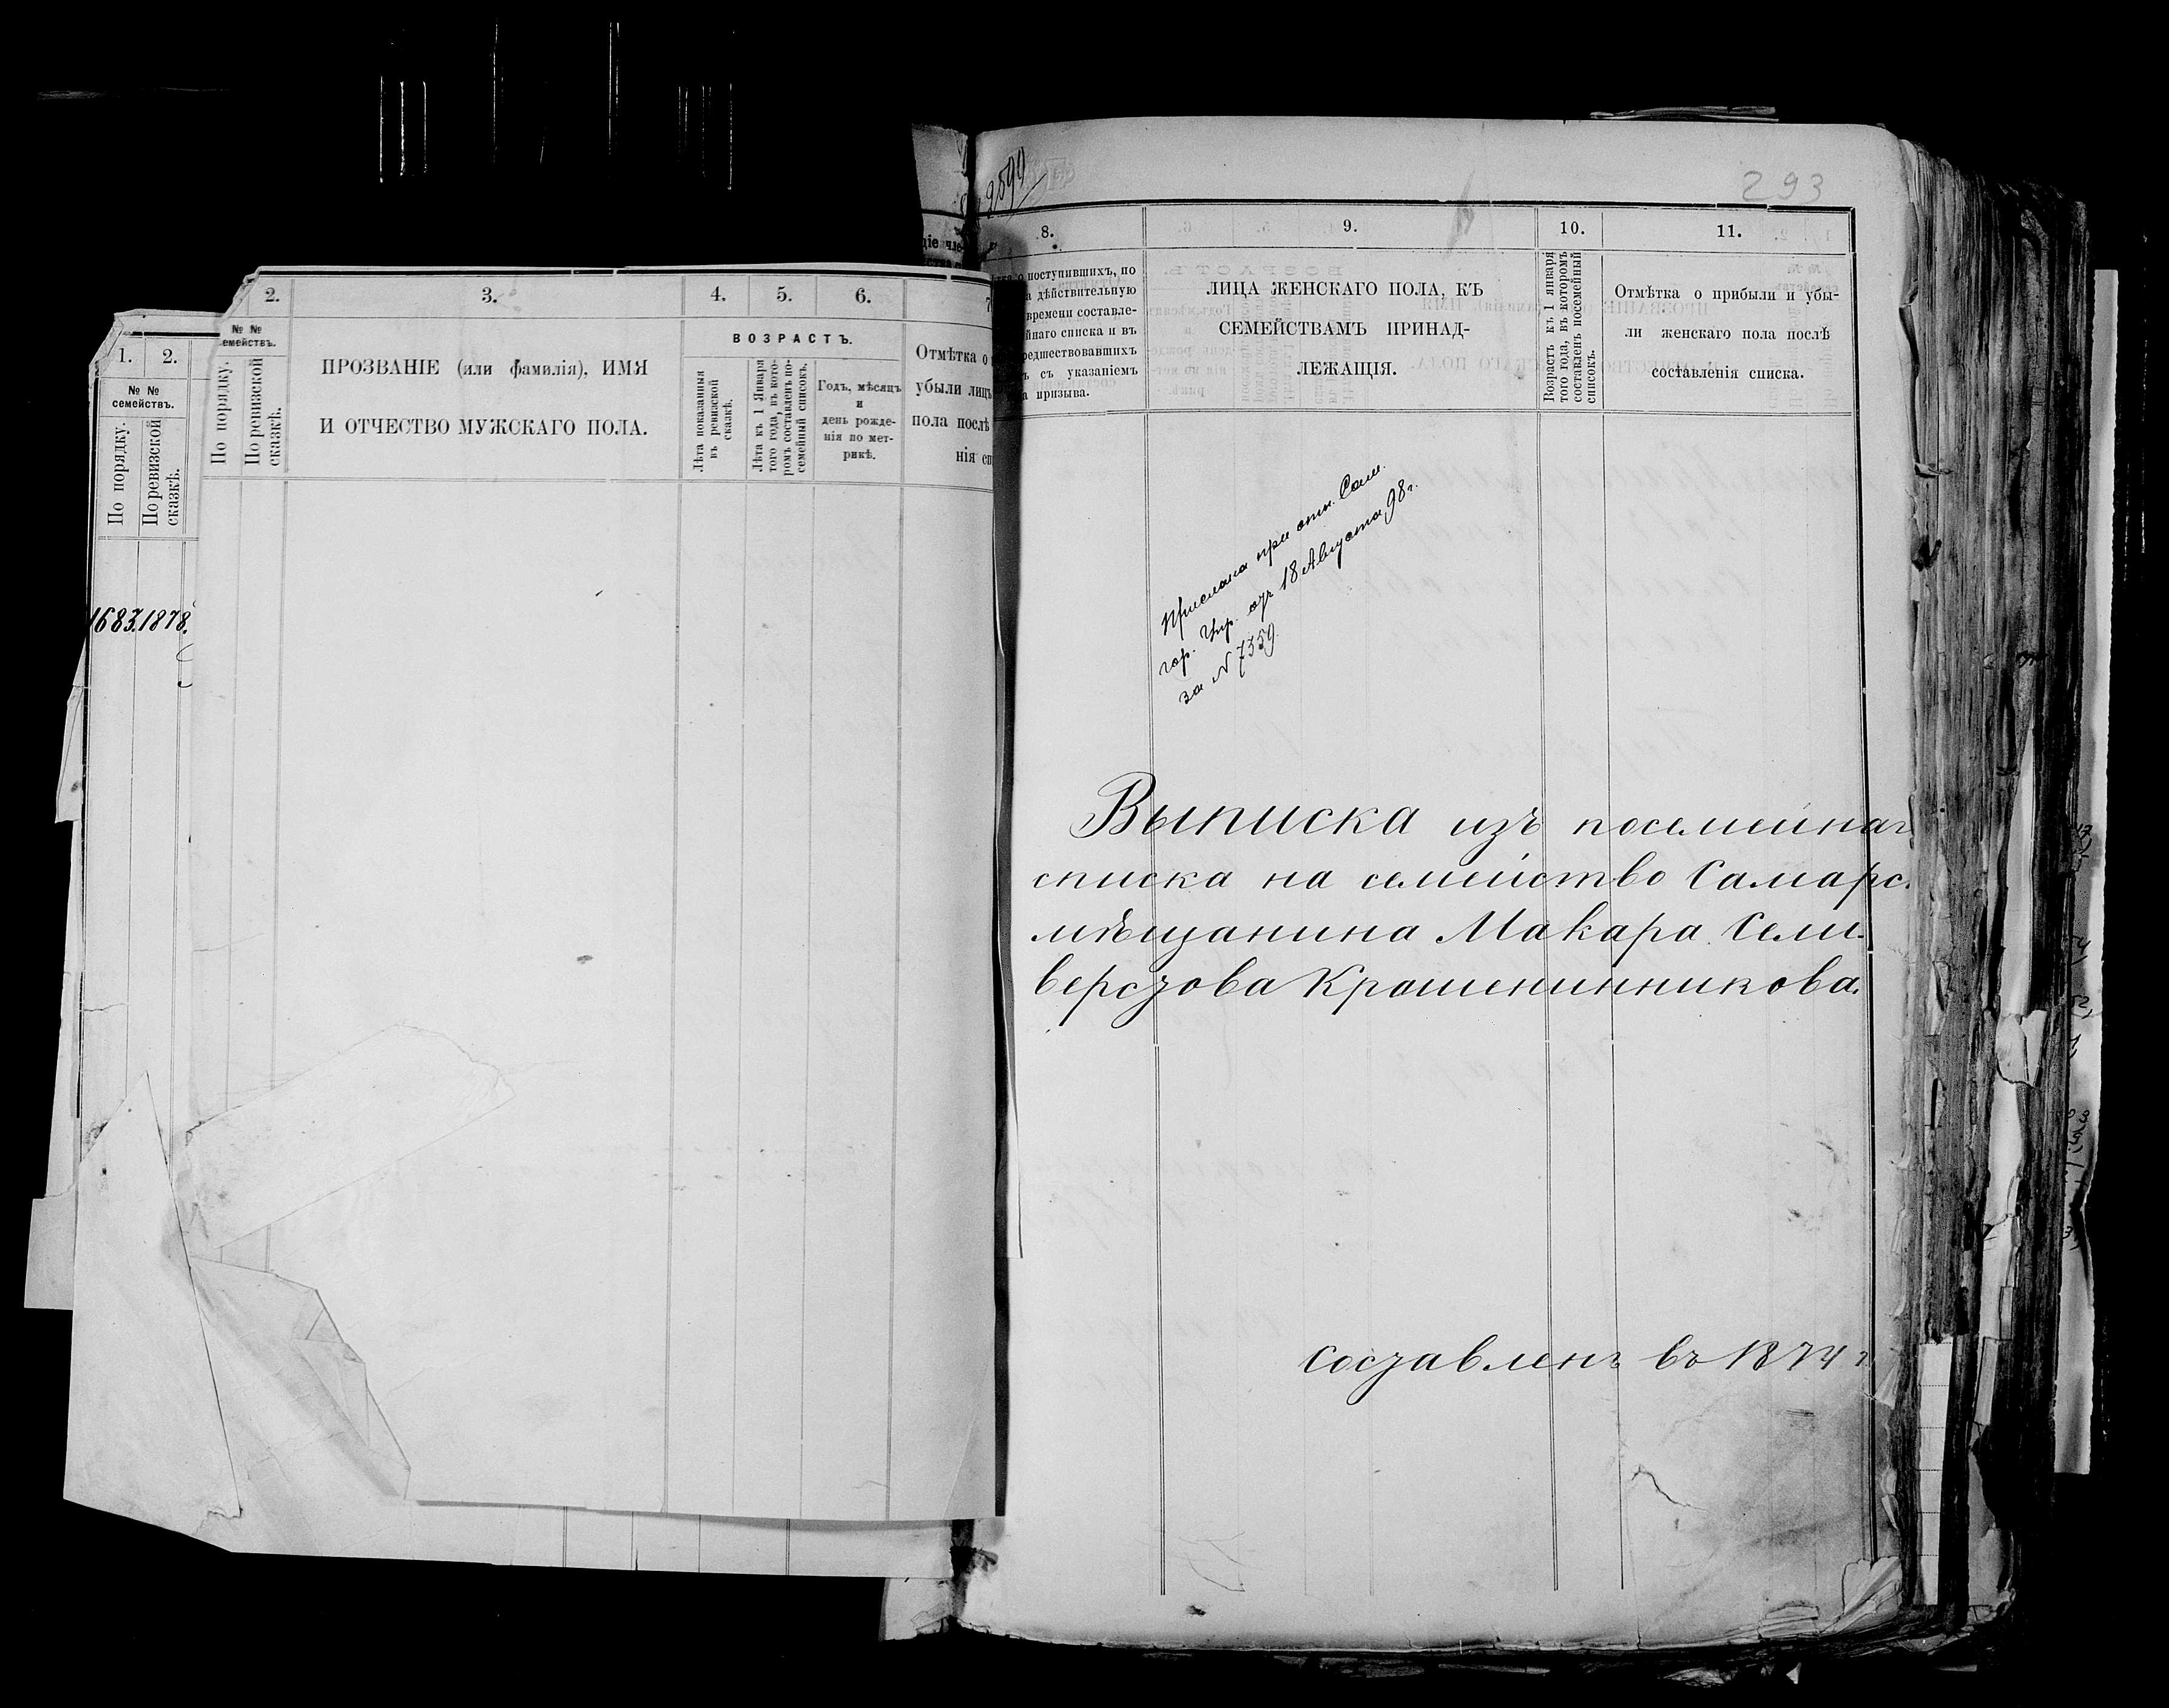 1. 2.
№ №
семействъ.
По порядку.
По ревизской
сказкѣ.
1683. 1878.
2. 3. 4. 5. 6. 7
№ №
семействъ.
По порядку.
По ревизской
сказкѣ.
ПРОЗВАНІЕ (или фамилія), ИМЯ
И ОТЧЕСТВО МУЖСКАГО ПОЛА.
ВОЗРАСТЪ.
Лѣта показанныя
въ ревизской
сказкѣ.
Лѣта къ 1 Января
того года, въ кото-
ромъ составленъ по-
семейный списокъ.
Годъ, мѣсяцъ
и
день рожде-
нія по мет-
рикѣ.
Отмѣтка о
убыли лицъ
пола послѣ
нія сп
2599
293
8. 9. 10. 11.
о поступившихъ, по
а дѣйствительную
времени составле-
йнаго списка и въ
редшествовавшихъ
ъ съ указаніемъ
а призыва.
ЛИЦА ЖЕНСКАГО ПОЛА, КЪ
СЕМЕЙСТВАМЪ ПРИНАД-
ЛЕЖАЩІЯ.
Возрастъ къ 1 января
того года, въ которомъ
составленъ посемейный
списокъ.
Отмѣтка о прибыли и убы-
ли женскаго пола послѣ
составленія списка.
Прислана при отн. Сам.
гор. Упр. отъ 18 Августа 98 г.
за № 7359.
Выписка изъ посемейнаг
списка на семейство Самарс.
мѣщанина Макара Сели-
верстова Крашенинникова.
Составленъ въ 1874 г